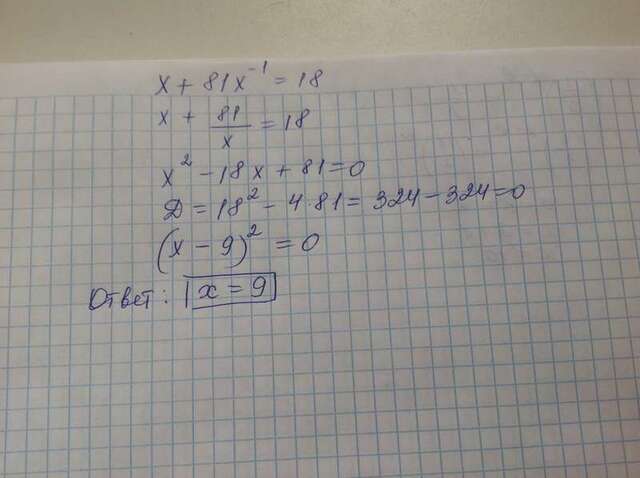 x + 81x⁻¹ = 18
x + 81/x = 18
x² - 18x + 81 = 0
D = 18² - 4·81 = 324 - 324 = 0
(x - 9)² = 0
Ответ: x = 9